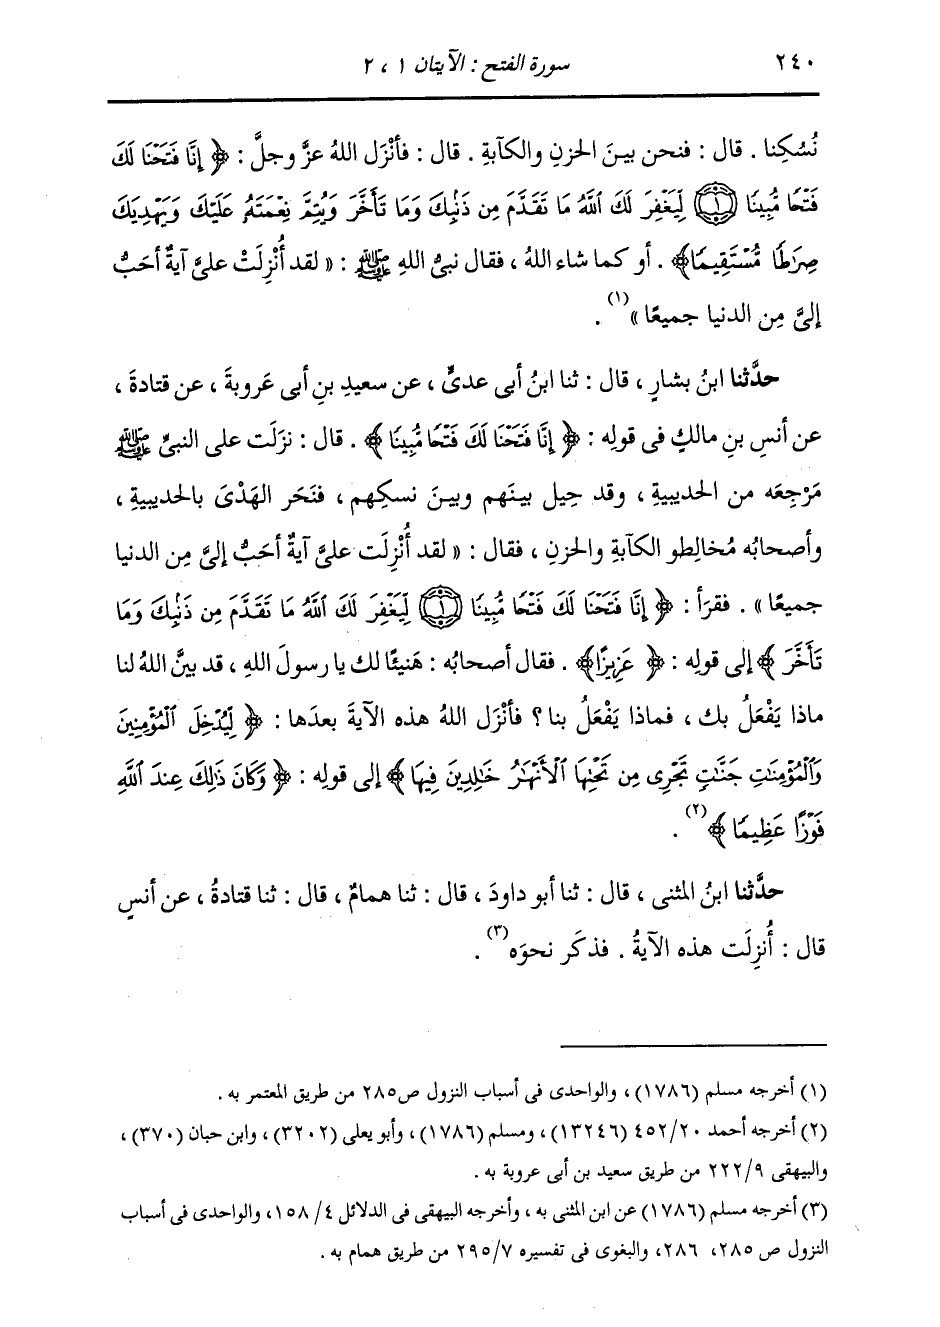 ٢٤٠ سورة الفتح : الآيتان ١ ، ٢
نُسُكِنا . قال : فنحن بينَ الحزنِ والكآبةِ . قال : فأنْزَل اللهُ عزَّ وجلَّ : ﴿ إِنَّا فَتَحْنَا لَكَ
فَتْحًا مُّبِينًا (١) لِّيَغْفِرَ لَكَ ٱللَّهُ مَا تَقَدَّمَ مِن ذَنۢبِكَ وَمَا تَأَخَّرَ وَيُتِمَّ نِعْمَتَهُۥ عَلَيْكَ وَيَهْدِيَكَ
صِرَٰطًا مُّسْتَقِيمًا﴾ . أو كما شاء اللهُ ، فقال نبىُّ اللهِ ﷺ : « لقد أُنْزِلَتْ علىَّ آيةٌ أحَبُّ
إلىَّ مِن الدنيا جميعًا »(١) .
حدَّثنا ابنُ بشارٍ ، قال : ثنا ابنُ أبى عدىٍّ ، عن سعيدِ بنِ أبى عَروبةَ ، عن قتادةَ ،
عن أنسِ بنِ مالكٍ فى قولِه : ﴿ إِنَّا فَتَحْنَا لَكَ فَتْحًا مُّبِينًا ﴾ . قال : نزَلَت على النبىِّ ﷺ
مَرْجِعَه من الحديبيةِ ، وقد حِيل بينَهم وبينَ نسكِهم ، فنَحَر الهَدْىَ بالحديبيةِ ،
وأصحابُه مُخالِطو الكآبةِ والحزنِ ، فقال : « لقد أُنْزِلَت علىَّ آيةٌ أحَبُّ إلىَّ مِن الدنيا
جميعًا » . فقرَأ : ﴿ إِنَّا فَتَحْنَا لَكَ فَتْحًا مُّبِينًا (١) لِّيَغْفِرَ لَكَ ٱللَّهُ مَا تَقَدَّمَ مِن ذَنۢبِكَ وَمَا
تَأَخَّرَ ﴾ إلى قولِه : ﴿ عَزِيزًا﴾ . فقال أصحابُه : هَنيئًا لك يا رسولَ اللهِ ، قد بينَّ اللهُ لنا
ماذا يَفْعَلُ بك ، فماذا يَفْعَلُ بنا ؟ فأنْزَل اللهُ هذه الآيةَ بعدَها : ﴿ لِّيُدْخِلَ ٱلْمُؤْمِنِينَ
وَٱلْمُؤْمِنَٰتِ جَنَّٰتٍ تَجْرِى مِن تَحْتِهَا ٱلْأَنْهَٰرُ خَٰلِدِينَ فِيهَا ﴾ إلى قولِه : ﴿ وَكَانَ ذَٰلِكَ عِندَ ٱللَّهِ
فَوْزًا عَظِيمًا ﴾(٢) .
حدَّثنا ابنُ المثنى ، قال : ثنا أبو داودَ ، قال : ثنا همامٌ ، قال : ثنا قتادةُ ، عن أنسٍ
قال : أُنزِلَت هذه الآيةُ . فذكَر نحوَه(٣) .
(١) أخرجه مسلم (١٧٨٦) ، والواحدى فى أسباب النزول ص٢٨٥ من طريق المعتمر به .
(٢) أخرجه أحمد ٤٥٢/٢٠ (١٣٢٤٦) ، ومسلم (١٧٨٦) ، وأبو يعلى (٣٢٠٢) ، وابن حبان (٣٧٠) ،
والبيهقى ٢٢٢/٩ من طريق سعيد بن أبى عروبة به .
(٣) أخرجه مسلم (١٧٨٦) عن ابن المثنى به ، وأخرجه البيهقى فى الدلائل ٤/ ١٥٨، والواحدى فى أسباب
النزول ص ٢٨٥، ٢٨٦، والبغوى فى تفسيره ٢٩٥/٧ من طريق همام به .